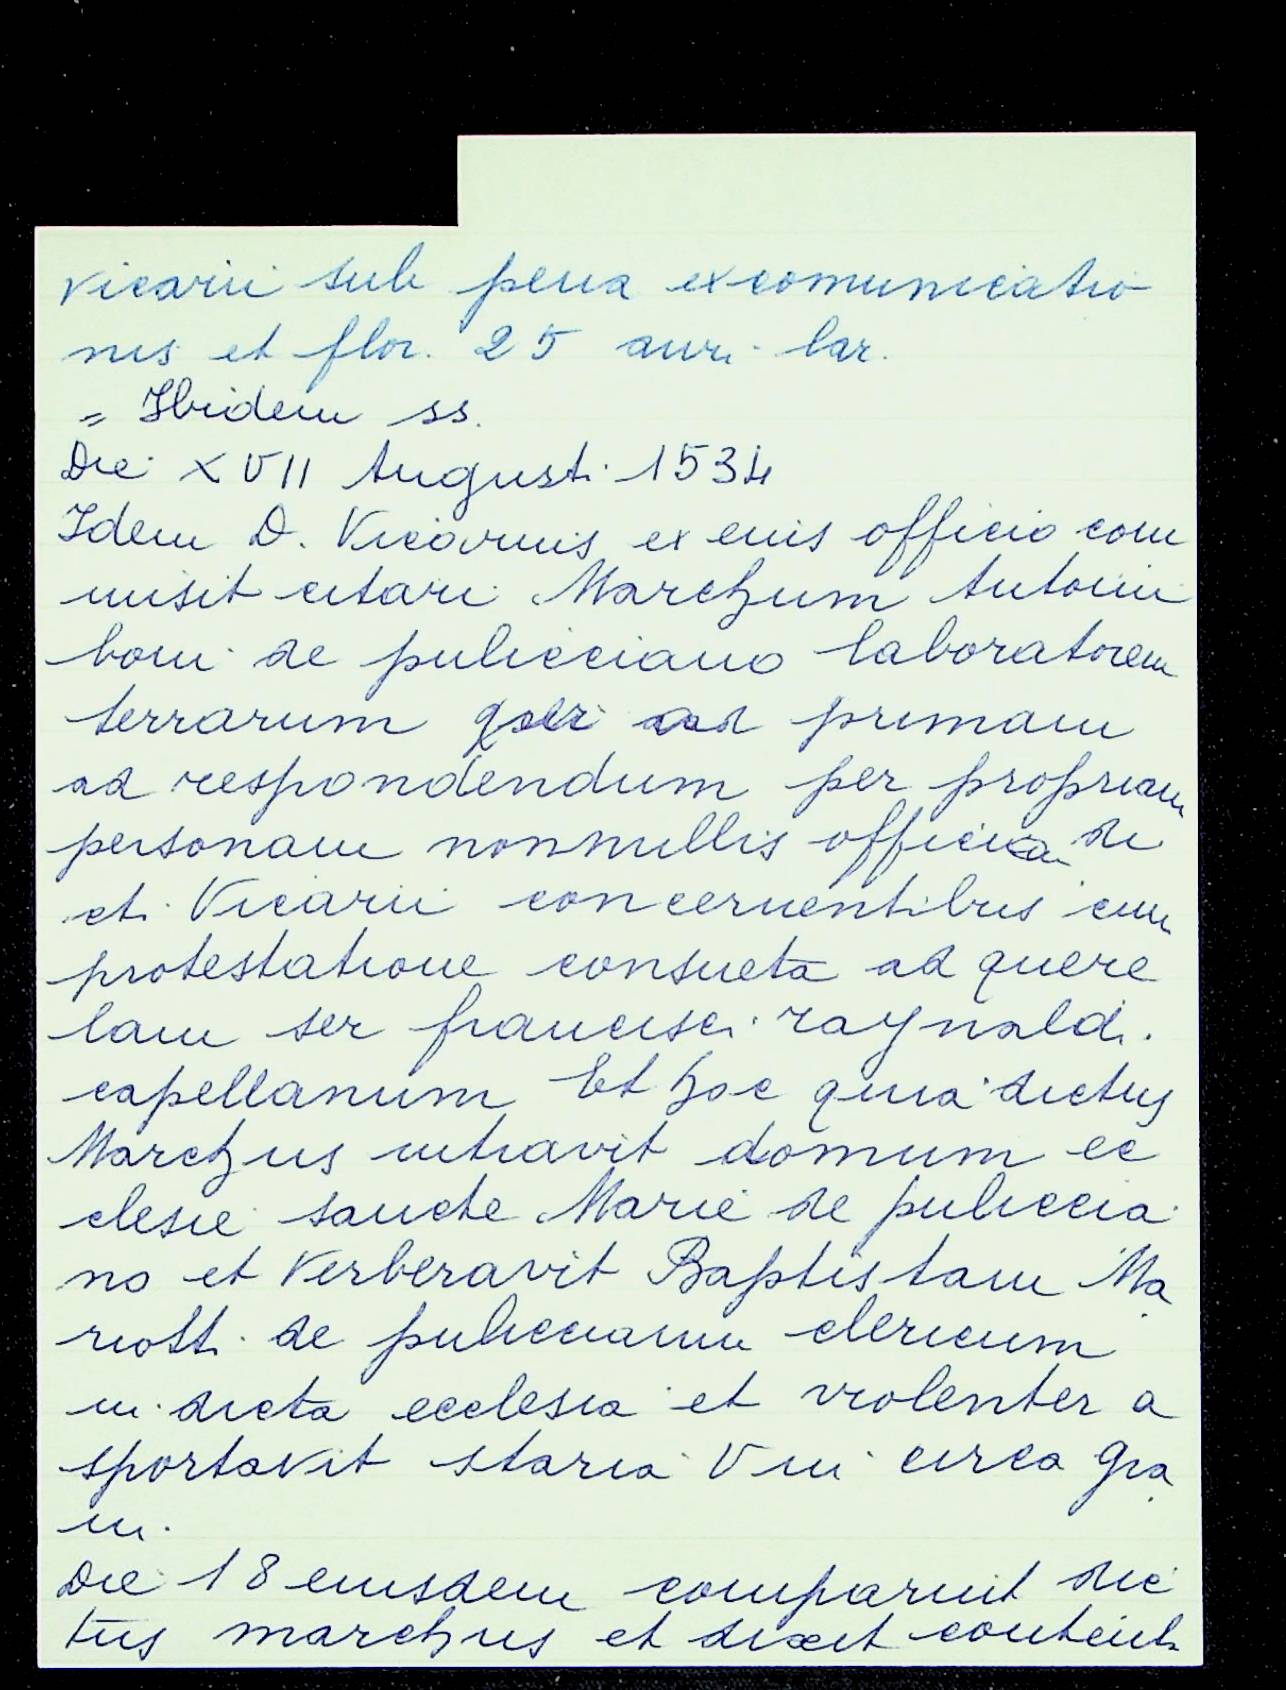 vicarii sub pena excomunicatio
nis et flor. 25 auri lar.
= Ibidem ss.
Die XVII Augusti 1534
Idem D. Vicarius ex eius officio com
misit citari Marchum Antonii
boni de pulicciano laboratorem
terrarum ad primam
ad respondendum per propriam
personam nonnullis officium
et Vicarii concernentibus cum
protestatione consueta ad quere
lam ser francisci raynaldi
capellanum Et hoc quia dictus
Marchus intravit domum ec
clesie sancte Marie de puliccia
no et verberavit Baptistam Ma
riotti de pulicciano clericum
in dicta ecclesia et violenter a
sportavit staria Viii circa gra
ni.
Die 18 eiusdem comparuit dic
tus marchus et dixit